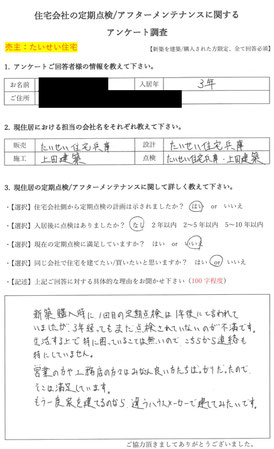 住宅会社の定期点検/アフターメンテナンスに関する
アンケート調査
売主：たいせい住宅
【新築を建築/購入された方限定、全て回答必須】
1. アンケートご回答者様の情報を教えて下さい。
お名前 入居年 3年
ご住所
2. 現住居における担当の会社名をそれぞれ教えて下さい。
販売 たいせい住宅兵庫 設計 たいせい住宅兵庫
施工 上田建築 点検 たいせい住宅兵庫・上田建築
3. 現住居の定期点検/アフターメンテナンスに関して詳しく教えて下さい。
・【選択】住宅会社側から定期点検の計画は示されましたか？ はい or いいえ
・【選択】入居後に点検はありましたか？ なし 2年以内 2～5年以内 5～10年以内
・【選択】現在の定期点検に満足していますか？ はい or いいえ
・【選択】同じ会社で住宅を建てたい/買いたいと思いますか？ はい or いいえ
・【記述】上記ご回答に対する具体的な理由をお聞かせ下さい（100字程度）
新築購入時に1回目の定期点検は1年後にと言われて
いましたが、3年経ってもまだ点検されていないのが不満です。
生活する上で特に困っていることは無いので、こちらから連絡も
特にしていません。
営業の方や工務店の方々はみなさん良い方たちばかりだったので、
そこは満足しています。
もう一度家を建てるのなら、違うハウスメーカーで建ててみたいです。
ご協力頂きましてありがとうございました。